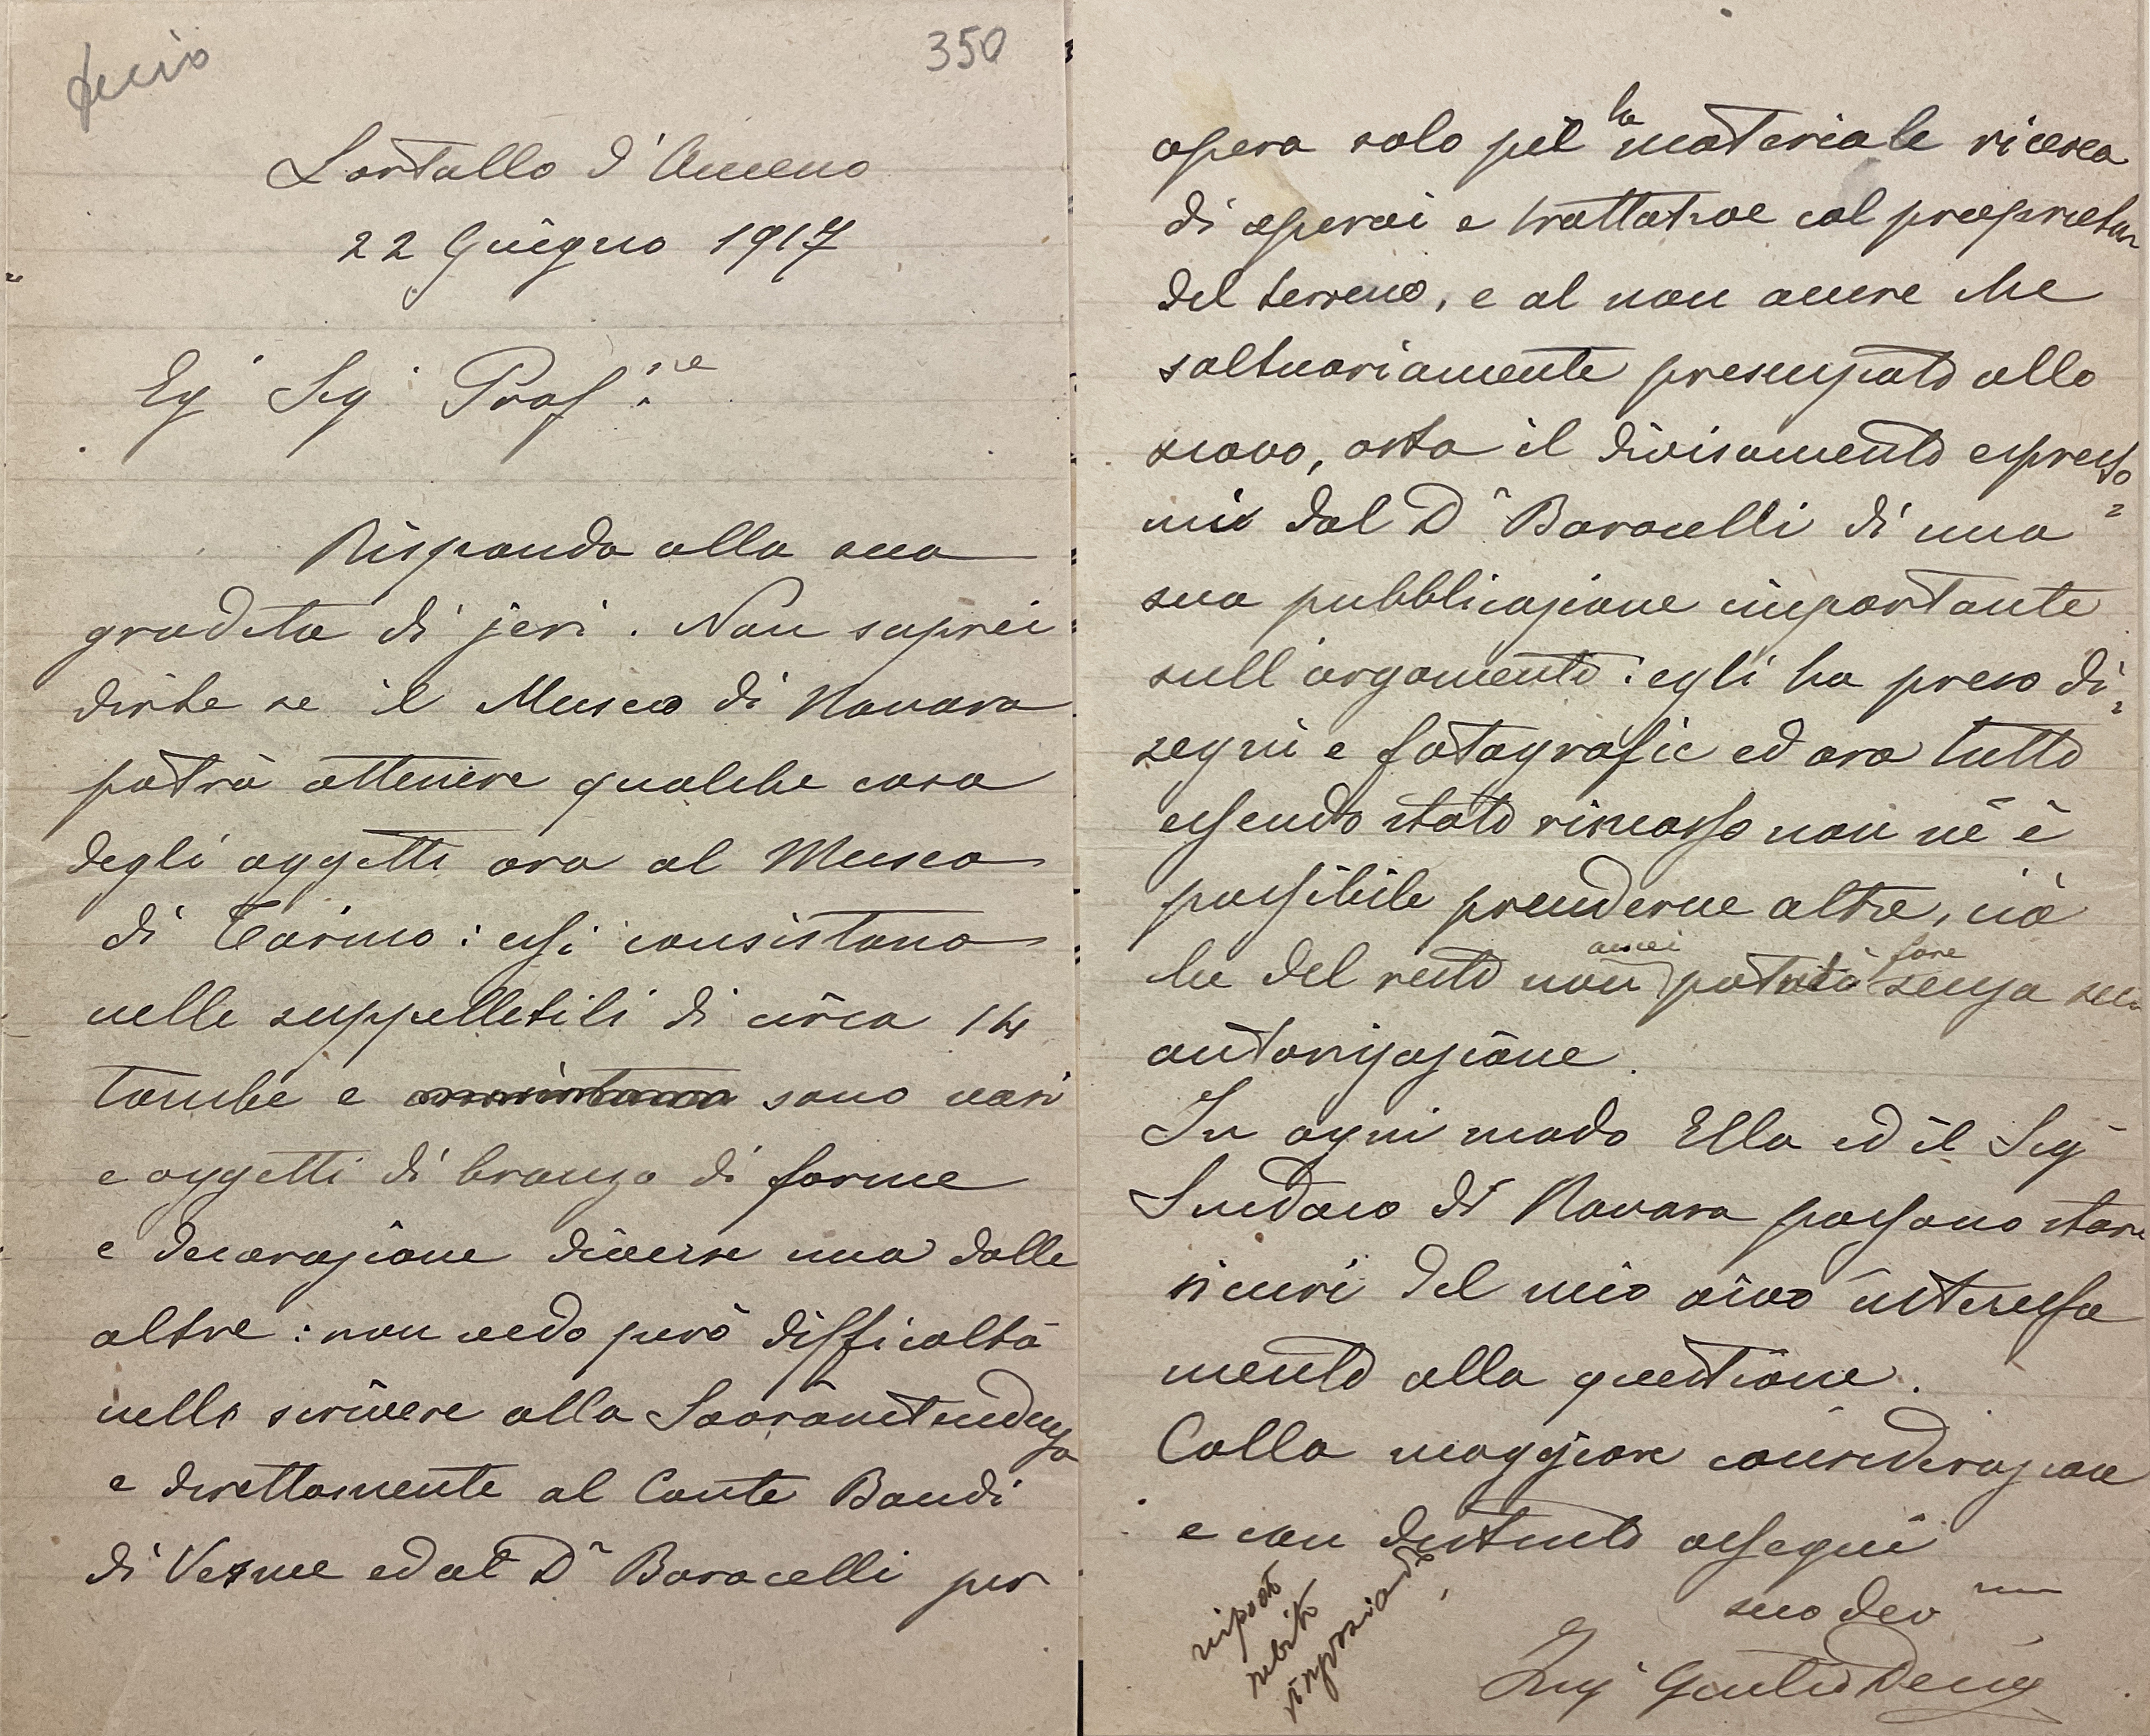 Decio
350
Lortallo d'Ameno
22 Giugno 1917
Eg Sig Prof.re
Rispondo alla sua
gradita di jeri. Non saprei
dirle se il Museo di Novara
potrà ottenere qualche cosa
degli oggetti ora al Museo
di Torino: essi consistono
nelle suppelletili di circa 14
tombe e sono vasi
e oggetti di bronzo di forme
e decorazione diverse una dalle
altre: non vedo però difficoltà
nello scrivere alla Sovraintendenza
e direttamente al Conte Baudi
di Vesme ed al Dr Barocelli per
opera solo pel la materiale ricerca
di operai e trattative col proprietar
del terreno, e al non avere che
saltuariamente presenziato allo
scavo, osta il divisamento espresso=
mi dal Dr Barocelli di una
sua pubblicazione importante
sull'argomento: egli ha preso di=
segni e fotografie ed ora tutto
essendo stato rimosso non nè è
possibile prenderne altre, ciò
che del resto non avrei potuto fare senza sua
autorizzazione.
In ogni modo Ella ed il Sig
Sindaco di Novara possono stare
sicuri del mio vivo interessa
mento alla questione.
Colla maggiore considerazione
e con distinto ossequi
suo dev mo
Ing Giulio Decio
risposto
subito
ringraziando